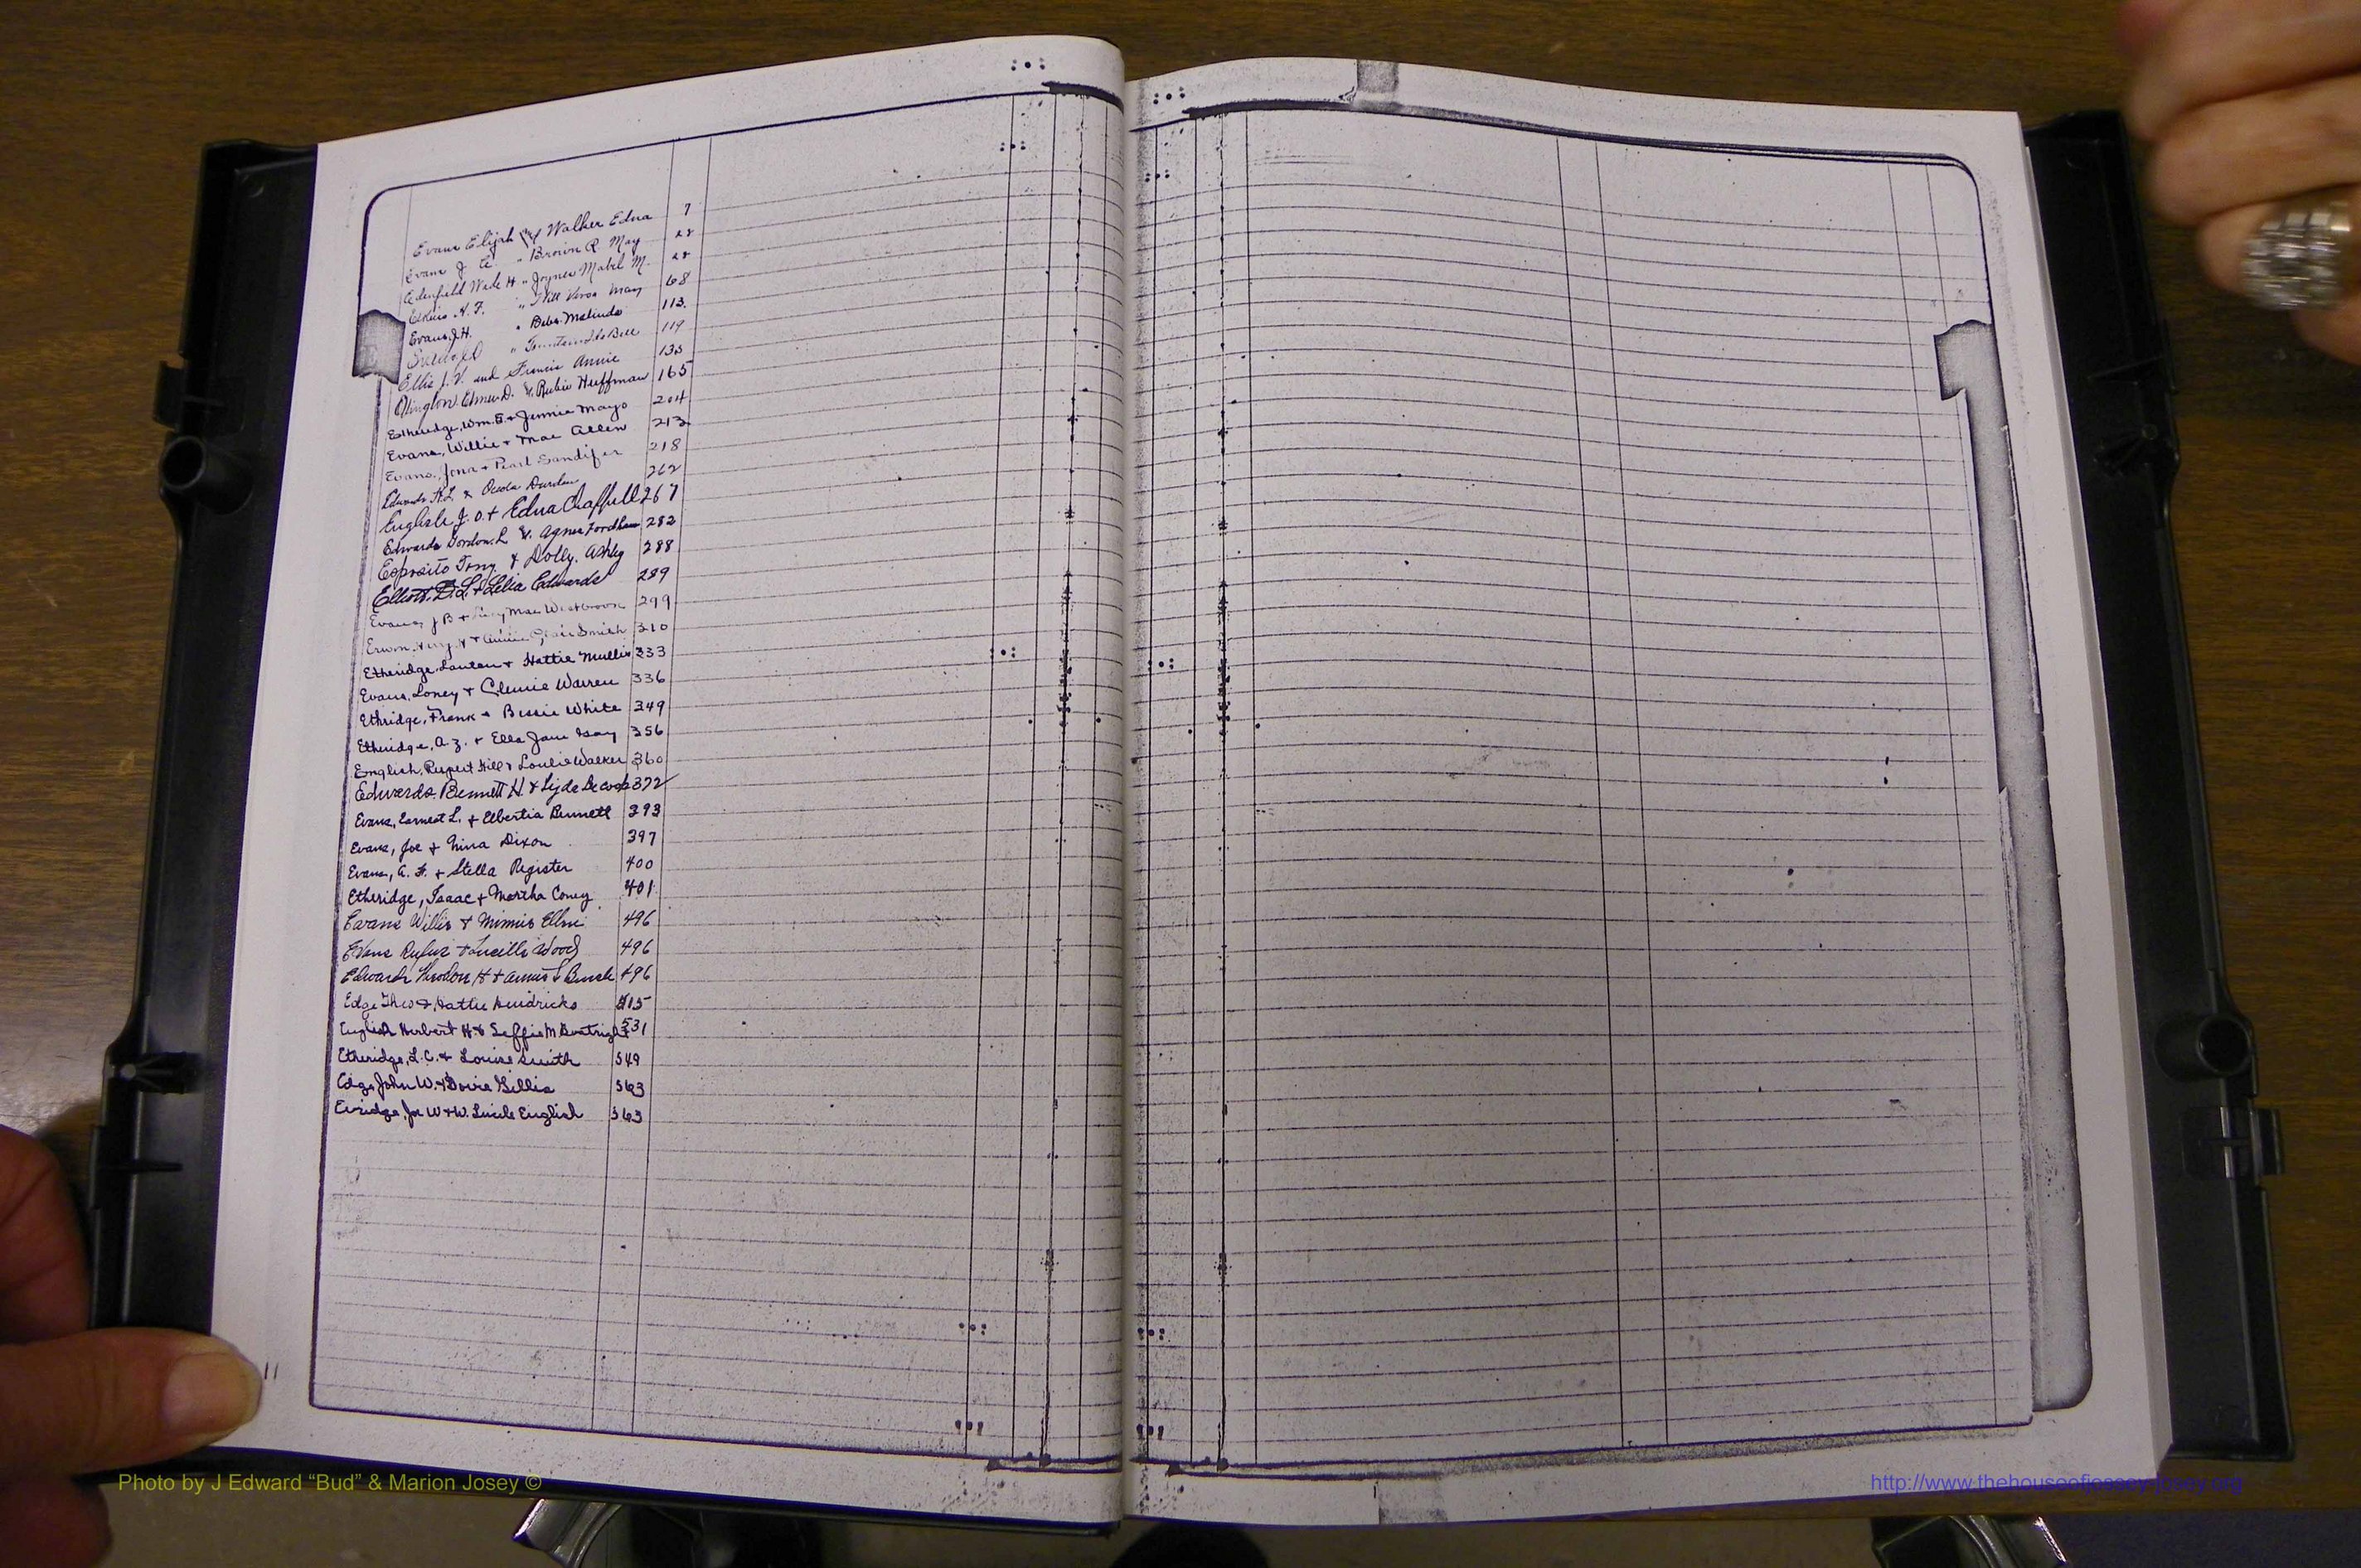 Evans Elijah Walker Edna 7
Evans J. E. " Brown R. May 28
Edenfield Wade H. " Joyner Mabel M. 28
N. F. " Vera May 68
Evans, J.H. " Melinda 113.
" Bell 119
Ellis J. V. and Francis Annie 135
Elmer D. & Rubie Huffman 165
Etheridge, Wm. E. + Jennie Mayo 204
Evans, Willie + Mae Allen 213
Evans, + Pearl Sandifer 218
Edwards & Durden 262
English J. O. + Edna Chappell 267
Edwards Gordon. L & Agnes Fordham 282
Esposito Tony & Dolly. Ashley 288
Elliott, D. L. + Lelia Edwards 289
Evans, J B + Mae Westbrook 299
Erwin, + Annie Smith 310
Etheridge, Lawton + Hattie Mullis 333
Evans, Loney + Clemie Warren 336
Ethridge, Frank + Bessie White 349
Etheridge, A. Z. + Ella Jane 356
English, Rupert Hill + Louise Walker 360
Edwards. Bennett H. & 372
Evans, Earnest L. + Elbertia Bennett 393
Evans, Joe + Nina Dixon 397
Evans, A. F. + Stella Register 400
Etheridge, Isaac + Martha Coney 401
Evans Willis & Minnie 496
Evans Rufus + Lucille Wood 496
Edwards H + Annie L Bush 496
Edge Theo + Hattie Hendricks 515
English Herbert H & M Boatright 531
Etheridge, L. C. + Louise Smith 549
Edge, John W. + Gillis 563
Joe W + W. Lucile English 563
11
Photo by J Edward “Bud” & Marion Josey ©
http://www.thehouseofjossey-josey.org